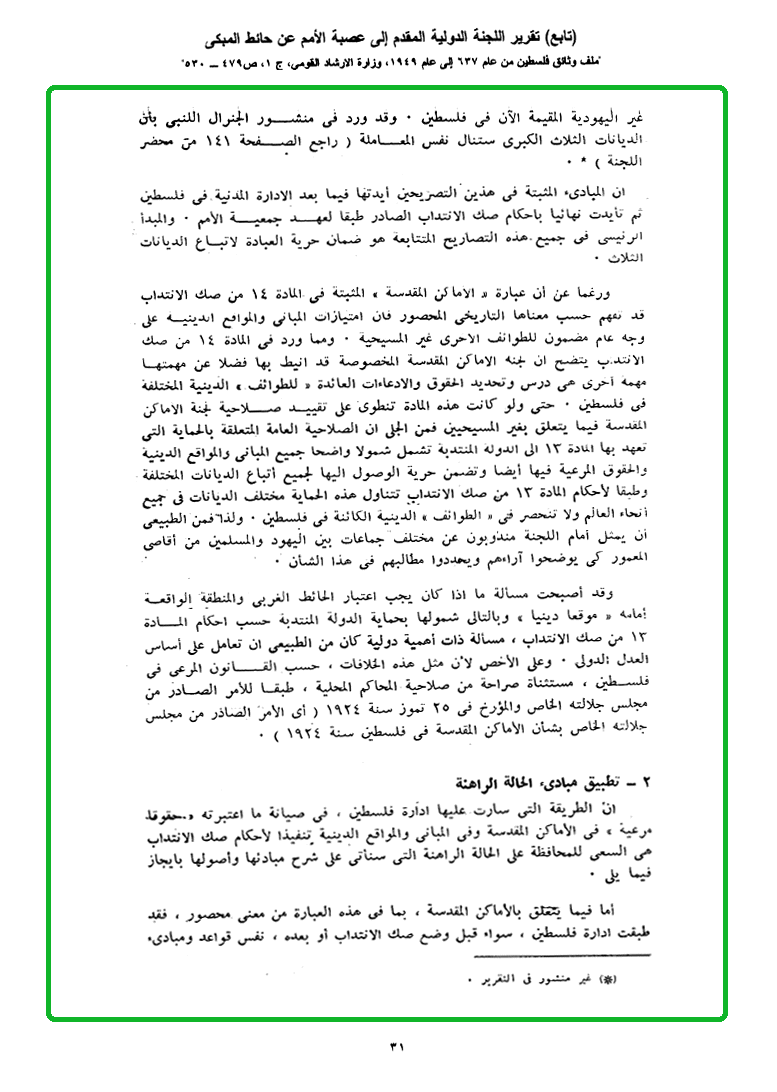 (تابع) تقرير اللجنة الدولية المقدم إلى عصبة الأمم عن حائط المبكى
"ملف وثائق فلسطين من عام ٦٣٧ إلى عام ١٩٤٩، وزارة الارشاد القومى، ج ١، ص٤٧٩ ــ ٥٣٠"
غير اليهودية المقيمة الآن فى فلسطين ٠ وقد ورد فى منشور الجنرال اللنبى بأن
الديانات الثلاث الكبرى ستنال نفس المعاملة ( راجع الصفحة ١٤١ من محضر
اللجنة ) * ٠
ان المبادىء المثبتة فى هذين التصريحين أيدتها فيما بعد الادارة المدنية فى فلسطين
ثم تأيدت نهائيا باحكام صك الانتداب الصادر طبقا لعهد جمعية الأمم ٠ والمبدأ
الرئيسى فى جميع هذه التصاريح المتتابعة هو ضمان حرية العبادة لاتباع الديانات
الثلاث ٠
ورغما عن أن عبارة « الاماكن المقدسة » المثبتة فى المادة ١٤ من صك الانتداب
قد تفهم حسب معناها التاريخى المحصور فان امتيازات المبانى والمواقع الدينية على
وجه عام مضمون للطوائف الاخرى غير المسيحية ٠ ومما ورد فى المادة ١٤ من صك
الانتداب يتضح ان لجنة الاماكن المقدسة المخصوصة قد انيط بها فضلا عن مهمتها
مهمة أخرى هى درس وتحديد الحقوق والادعاءات العائدة « للطوائف » الدينية المختلفة
فى فلسطين ٠ حتى ولو كانت هذه المادة تنطوى على تقييد صلاحية لجنة الاماكن
المقدسة فيما يتعلق بغير المسيحيين فمن الجلى ان الصلاحية العامة المتعلقة بالحماية التى
تعهد بها المادة ١٣ الى الدولة المنتدبة تشمل شمولا واضحا جميع المبانى والمواقع الدينية
والحقوق المرعية فيها أيضا وتضمن حرية الوصول اليها لجميع أتباع الديانات المختلفة
وطبقا لأحكام المادة ١٣ من صك الانتداب تتناول هذه الحماية مختلف الديانات فى جميع
أنحاء العالم ولا تنحصر فى « الطوائف » الدينية الكائنة فى فلسطين ٠ ولذا فمن الطبيعى
أن يمثل أمام اللجنة مندوبون عن مختلف جماعات بين اليهود والمسلمين من أقاصى
المعمور كى يوضحوا آراءهم ويحددوا مطالبهم فى هذا الشأن ٠
وقد أصبحت مسألة ما اذا كان يجب اعتبار الحائط الغربى والمنطقة الواقعة
أمامه « موقعا دينيا » وبالتالى شمولها بحماية الدولة المنتدبة حسب احكام المادة
١٣ من صك الانتداب ، مسألة ذات أهمية دولية كان من الطبيعى ان تعامل على أساس
العدل الدولى ٠ وعلى الأخص لأن مثل هذه الخلافات ، حسب القانون المرعى فى
فلسطين ، مستثناة صراحة من صلاحية المحاكم المحلية ، طبقا للأمر الصادر من
مجلس جلالته الخاص والمؤرخ فى ٢٥ تموز سنة ١٩٢٤ ( أى الأمر الصادر من مجلس
جلالته الخاص بشأن الأماكن المقدسة فى فلسطين سنة ١٩٢٤ ) ٠
٢ ــ تطبيق مبادىء الحالة الراهنة
انّ الطريقة التى سارت عليها ادارة فلسطين ، فى صيانة ما اعتبرته « حقوقا
مرعية » فى الأماكن المقدسة وفى المبانى والمواقع الدينية تنفيذا لأحكام صك الانتداب
هى السعى للمحافظة على الحالة الراهنة التى سنأتى على شرح مبادئها وأصولها بايجاز
فيما يلى ٠
أما فيما يتعلق بالأماكن المقدسة ، بما فى هذه العبارة من معنى محصور ، فقد
طبقت ادارة فلسطين ، سواء قبل وضع صك الانتداب أو بعده ، نفس قواعد ومبادىء
(*) غير منشور فى التقرير ٠
٣١